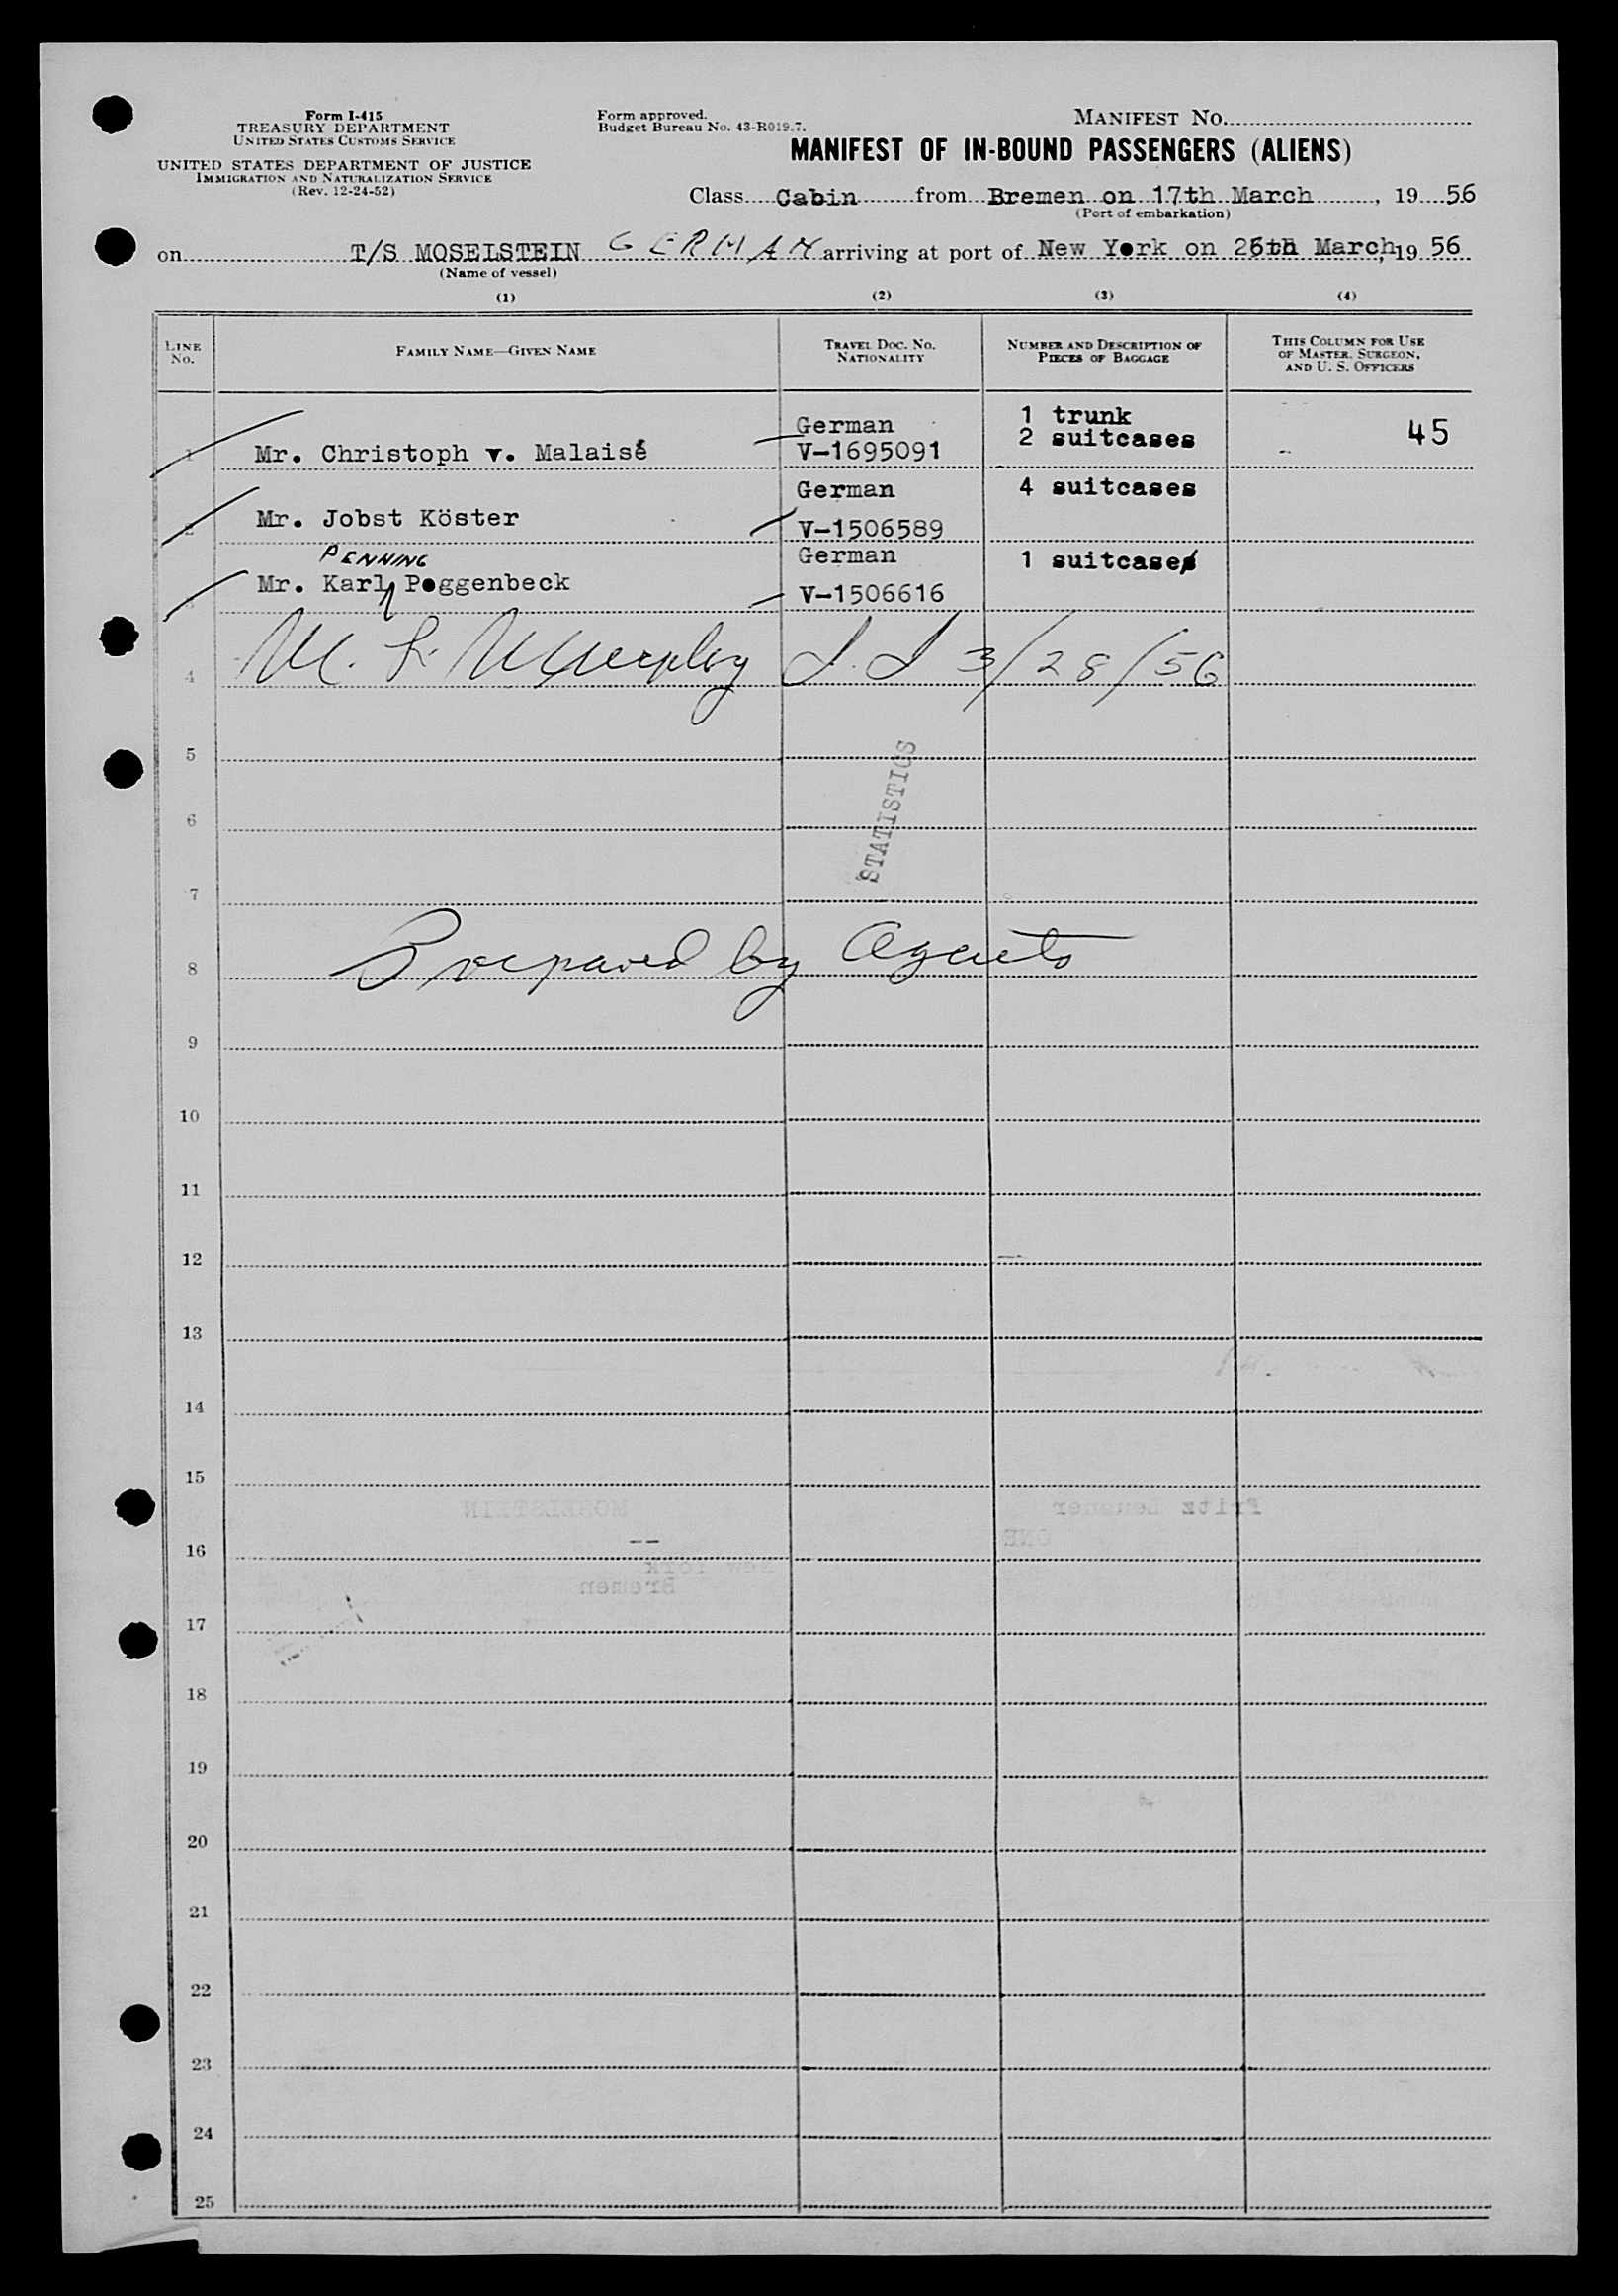 Form I-415
TREASURY DEPARTMENT
UNITED STATES CUSTOMS SERVICE
UNITED STATES DEPARTMENT OF JUSTICE
IMMIGRATION AND NATURALIZATION SERVICE
(Rev. 12-24-52)
Form approved.
Budget Bureau No. 43-R019.7.
MANIFEST No.
MANIFEST OF IN-BOUND PASSENGERS (ALIENS)
Class Cabin from Bremen on 17th March, 19 56
(Port of embarkation)
on T/S MOSELSTEIN GERMAN arriving at port of New York on March, 19 56
(Name of vessel)
(1) (2) (3) (4)
LINE No. FAMILY NAME—GIVEN NAME TRAVEL DOC. NO. NATIONALITY NUMBER AND DESCRIPTION OF PIECES OF BAGGAGE THIS COLUMN FOR USE OF MASTER, SURGEON, AND U. S. OFFICERS
German 1 trunk
1 Mr. Christoph v. Malaisé V-1695091 2 suitcases 45
German 4 suitcases
2 Mr. Jobst Köster V-1506589
PENNING German 1 suitcase
3 Mr. Karl Poggenbeck V-1506616
4 3/28/56
5
STATISTICS
6
7
8 Prepared by Agents
9
10
11
12
13
14
15
MOSELSTEIN Fritz
16 ONE
New York
Bremen
17
18
19
20
21
22
23
24
25